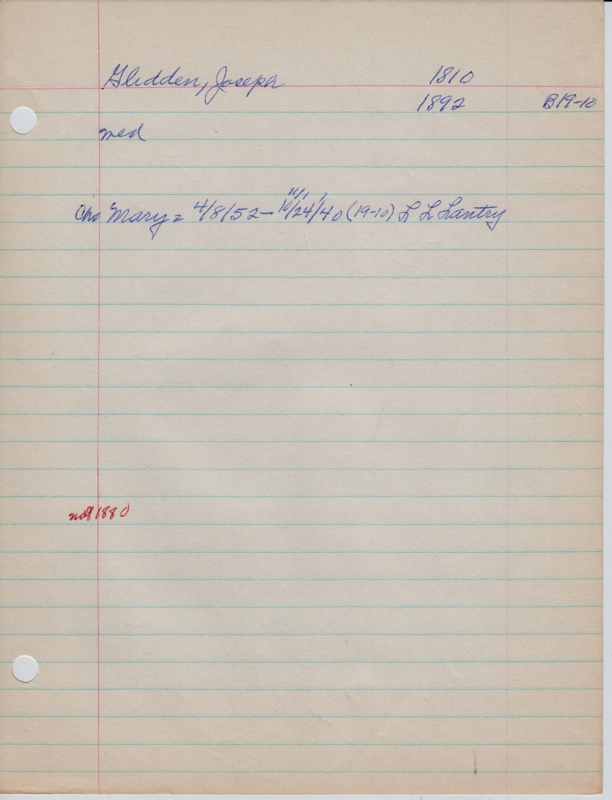 Glidden, Joseph 1810
1892 B19-10
med
11/1/
Chi Mary = 4/8/52 - 10/24/40 (19-10) L L Lantry
not 1880